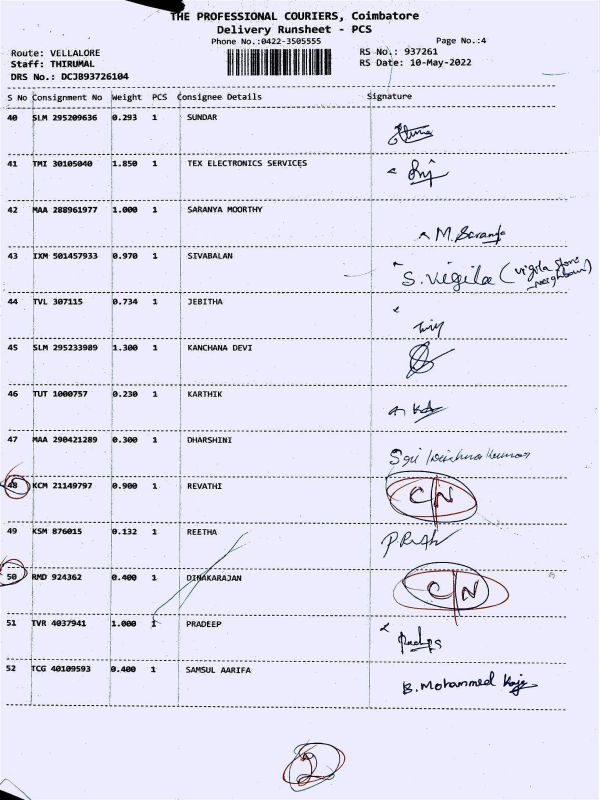 THE PROFESSIONAL COURIERS, Coimbatore
Delivery Runsheet - PCS
Phone No.:0422-3505555 Page No.:4
Route: VELLALORE RS No.: 937261
Staff: THIRUMAL RS Date: 10-May-2022
DRS No.: DCJB93726104
S No Consignment No Weight PCS Consignee Details Signature
40 SLM 295209636 0.293 1 SUNDAR
41 TMI 30105040 1.850 1 TEX ELECTRONICS SERVICES
42 MAA 288961977 1.000 1 SARANYA MOORTHY
M. Saranya
43 IXM 501457933 0.970 1 SIVABALAN
S. Vigila (vigila store
neighbour)
44 TVL 307115 0.734 1 JEBITHA
45 SLM 295233989 1.300 1 KANCHANA DEVI
46 TUT 1000757 0.230 1 KARTHIK
47 MAA 290421289 0.300 1 DHARSHINI
Sri
48 KCM 21149797 0.900 1 REVATHI
C/N
49 KSM 876015 0.132 1 REETHA
50 RMD 924362 0.400 1 DINAKARAJAN
C/N
51 TVR 4037941 1.000 1 PRADEEP
52 TCG 40109593 0.400 1 SAMSUL AARIFA
B. Mohammed
2